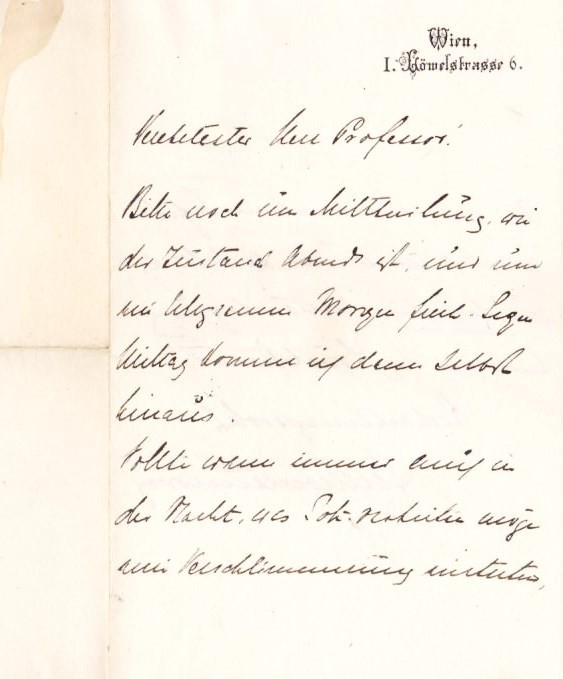 Wien,
I. Löwelstrasse 6.
Verehrtester Herr Professor!
Bitte noch um Mittheilung, wie
der Zustand Abends ist, und um
ein Telegramm Morgen früh. Gegen
Mittag komme ich dann selbst
hinaus.
Sollte wann immer auch in
der Nacht, was Gott verhüten möge
eine Verschlimmerung eintreten,